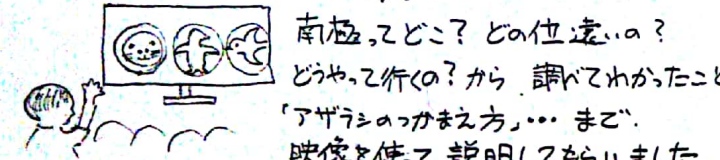 南極ってどこ? どの位遠いの?
どうやって行くの?から 調べてわかったこと
「アザラシのつかまえ方」… まで.
映像を使って 説明してもらいました